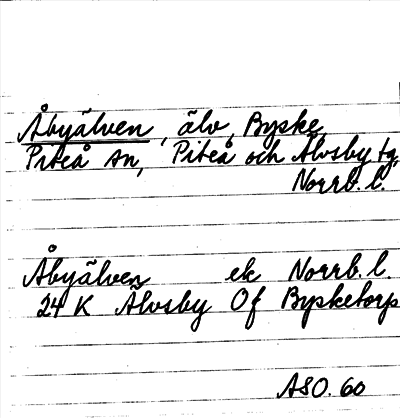 Åbyälven, älv, Byske,
Piteå sn, Piteå och Älvsby tg,
Norrb. l.
Åbyälven ek Norrb. l.
24 K Älvsby Of Bysketorp
ASO. 60